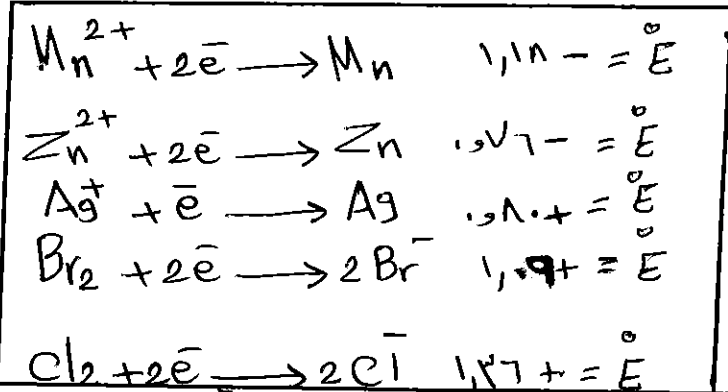 Mn²⁺ + 2e⁻ ⟶ Mn E° = − ١,١٨
Zn²⁺ + 2e⁻ ⟶ Zn E° = − ٠,٧٦
Ag⁺ + e⁻ ⟶ Ag E° = + ٠,٨٠
Br₂ + 2e⁻ ⟶ 2Br⁻ E° = + ١,٠٩
Cl₂ + 2e⁻ ⟶ 2Cl⁻ E° = + ١,٣٦